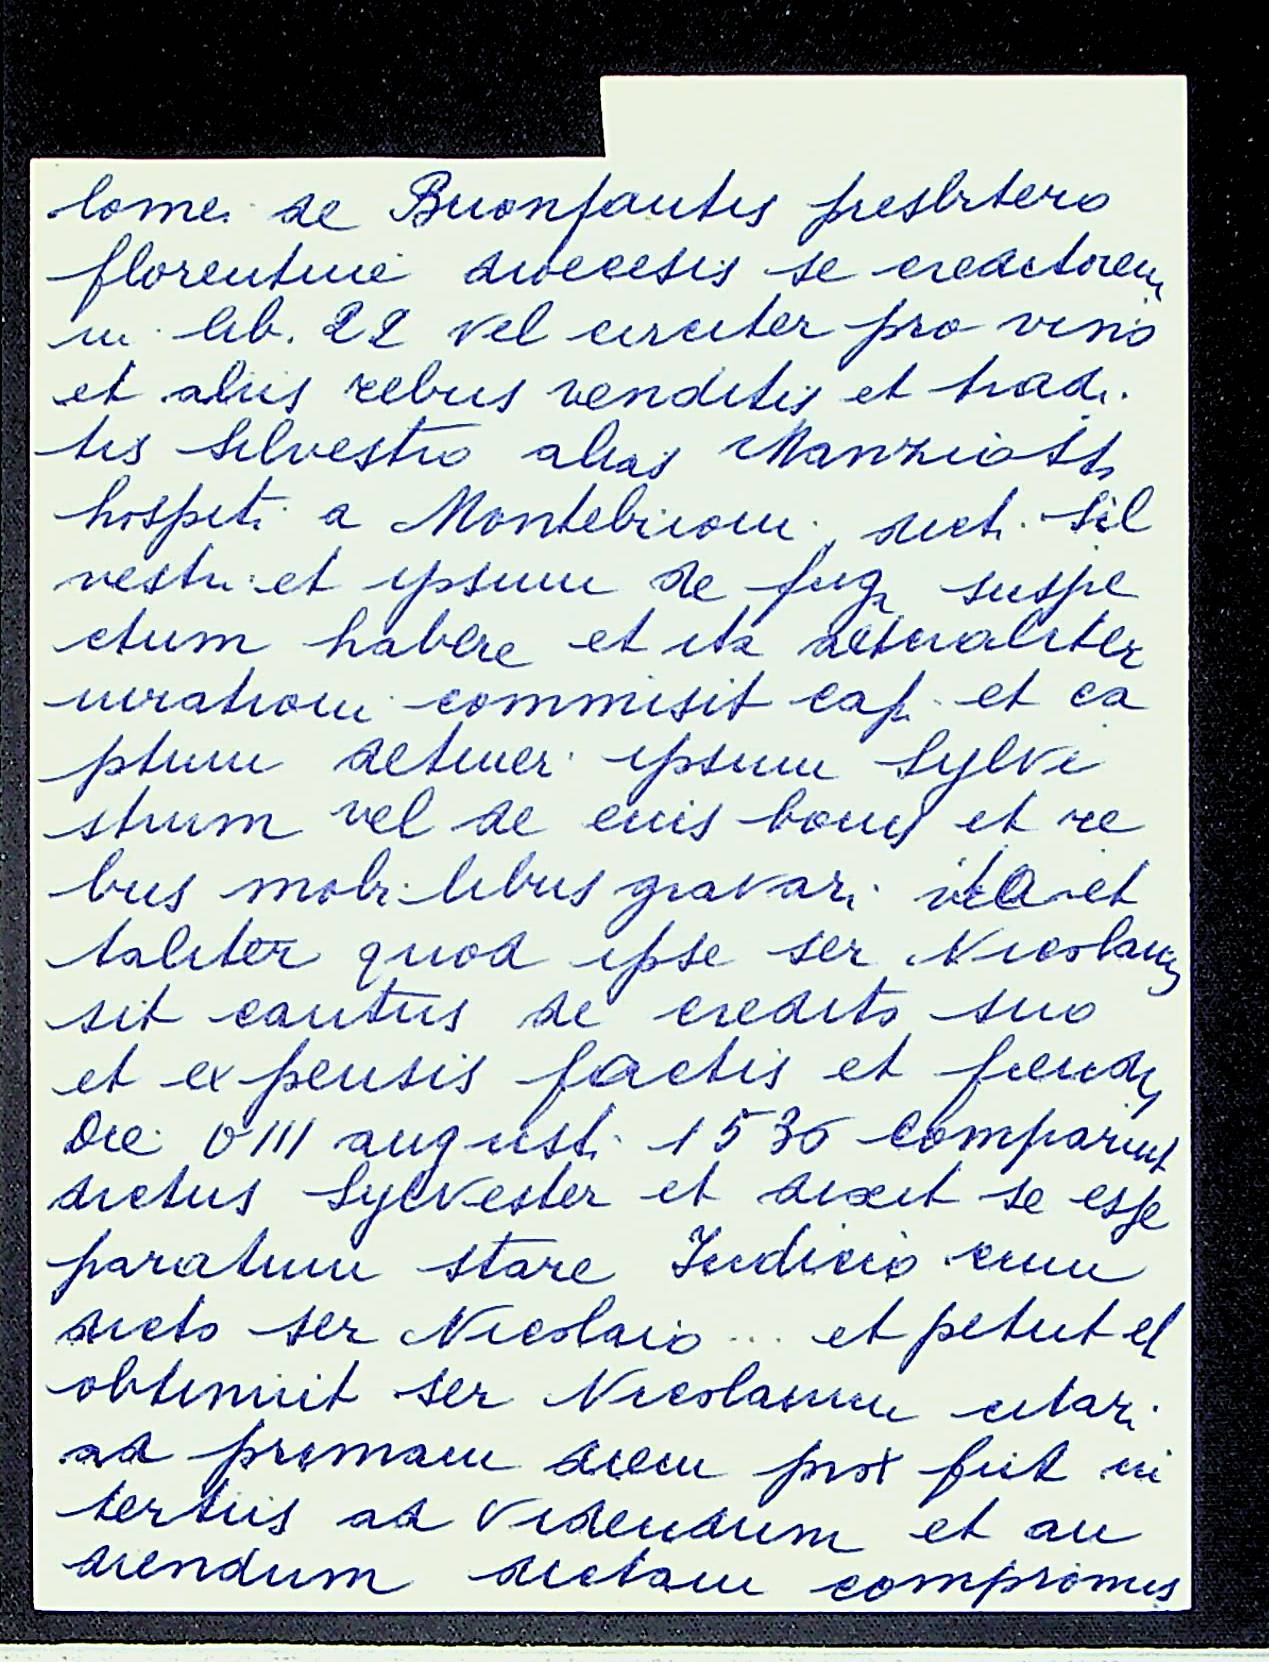 lome. de Buonfantis presbitero
florentine diocesis se creditorem
in lib. 22 vel circiter pro vino
et aliis rebus venditis et tradi.
tis Silvestro alias Manziotti
hospiti a Montebuoni, dicti Sil
vestri et ipsum de fuga suspe
ctum habere et ita
commisit cap. et ca
ptum detiner. ipsum Sylve
strum vel de eius bonis et re
bus mobilibus gravari ita et
taliter quod ipse ser Nicolaus
sit cautus de credito suo
et expensis factis et fiendis
Die VIII augusti 1536 comparuit
dictus Sylvester et dixit se esse
paratum stare Iudicio cum
dicto ser Nicolaio ... et petiit et
obtinuit ser Nicolaum citari
ad primam diem prox fuit in
tertiis ad videndum et au
diendum dictam compromis